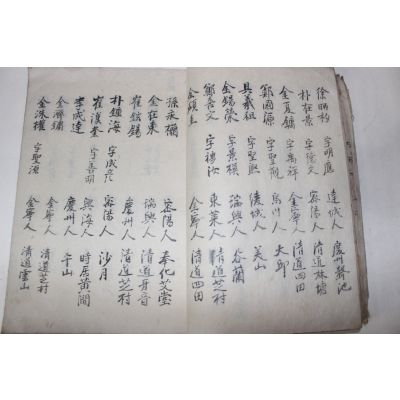 徐昞杓 字明應 達城人 慶州聲池
朴在景 字德文 密陽人 清道林塘
金夏鏞 字禹祥 金寧人 清道四田
鄭國源 字聖觀 烏川人 大邱
具義祖 字聖熙 綾城人 美山
金錫榮 字景模 瑞興人 谷蘭
鄭奎文 字穉汝 東萊人 清道芝村
金碩 金寧人 清道四田
孫永 密陽人 奉化艾堂
金在東 瑞興人 清道牙音
崔鉉錫 慶州人 清道芝村
朴鎮海 字成彦 密陽人 沙月
崔濩奎 字善明 興海人 時居黃澗
李成達 慶州人 牛山
金 鏞 金寧人 清道芝村
金洙權 字聖源 金寧人 清道雲山